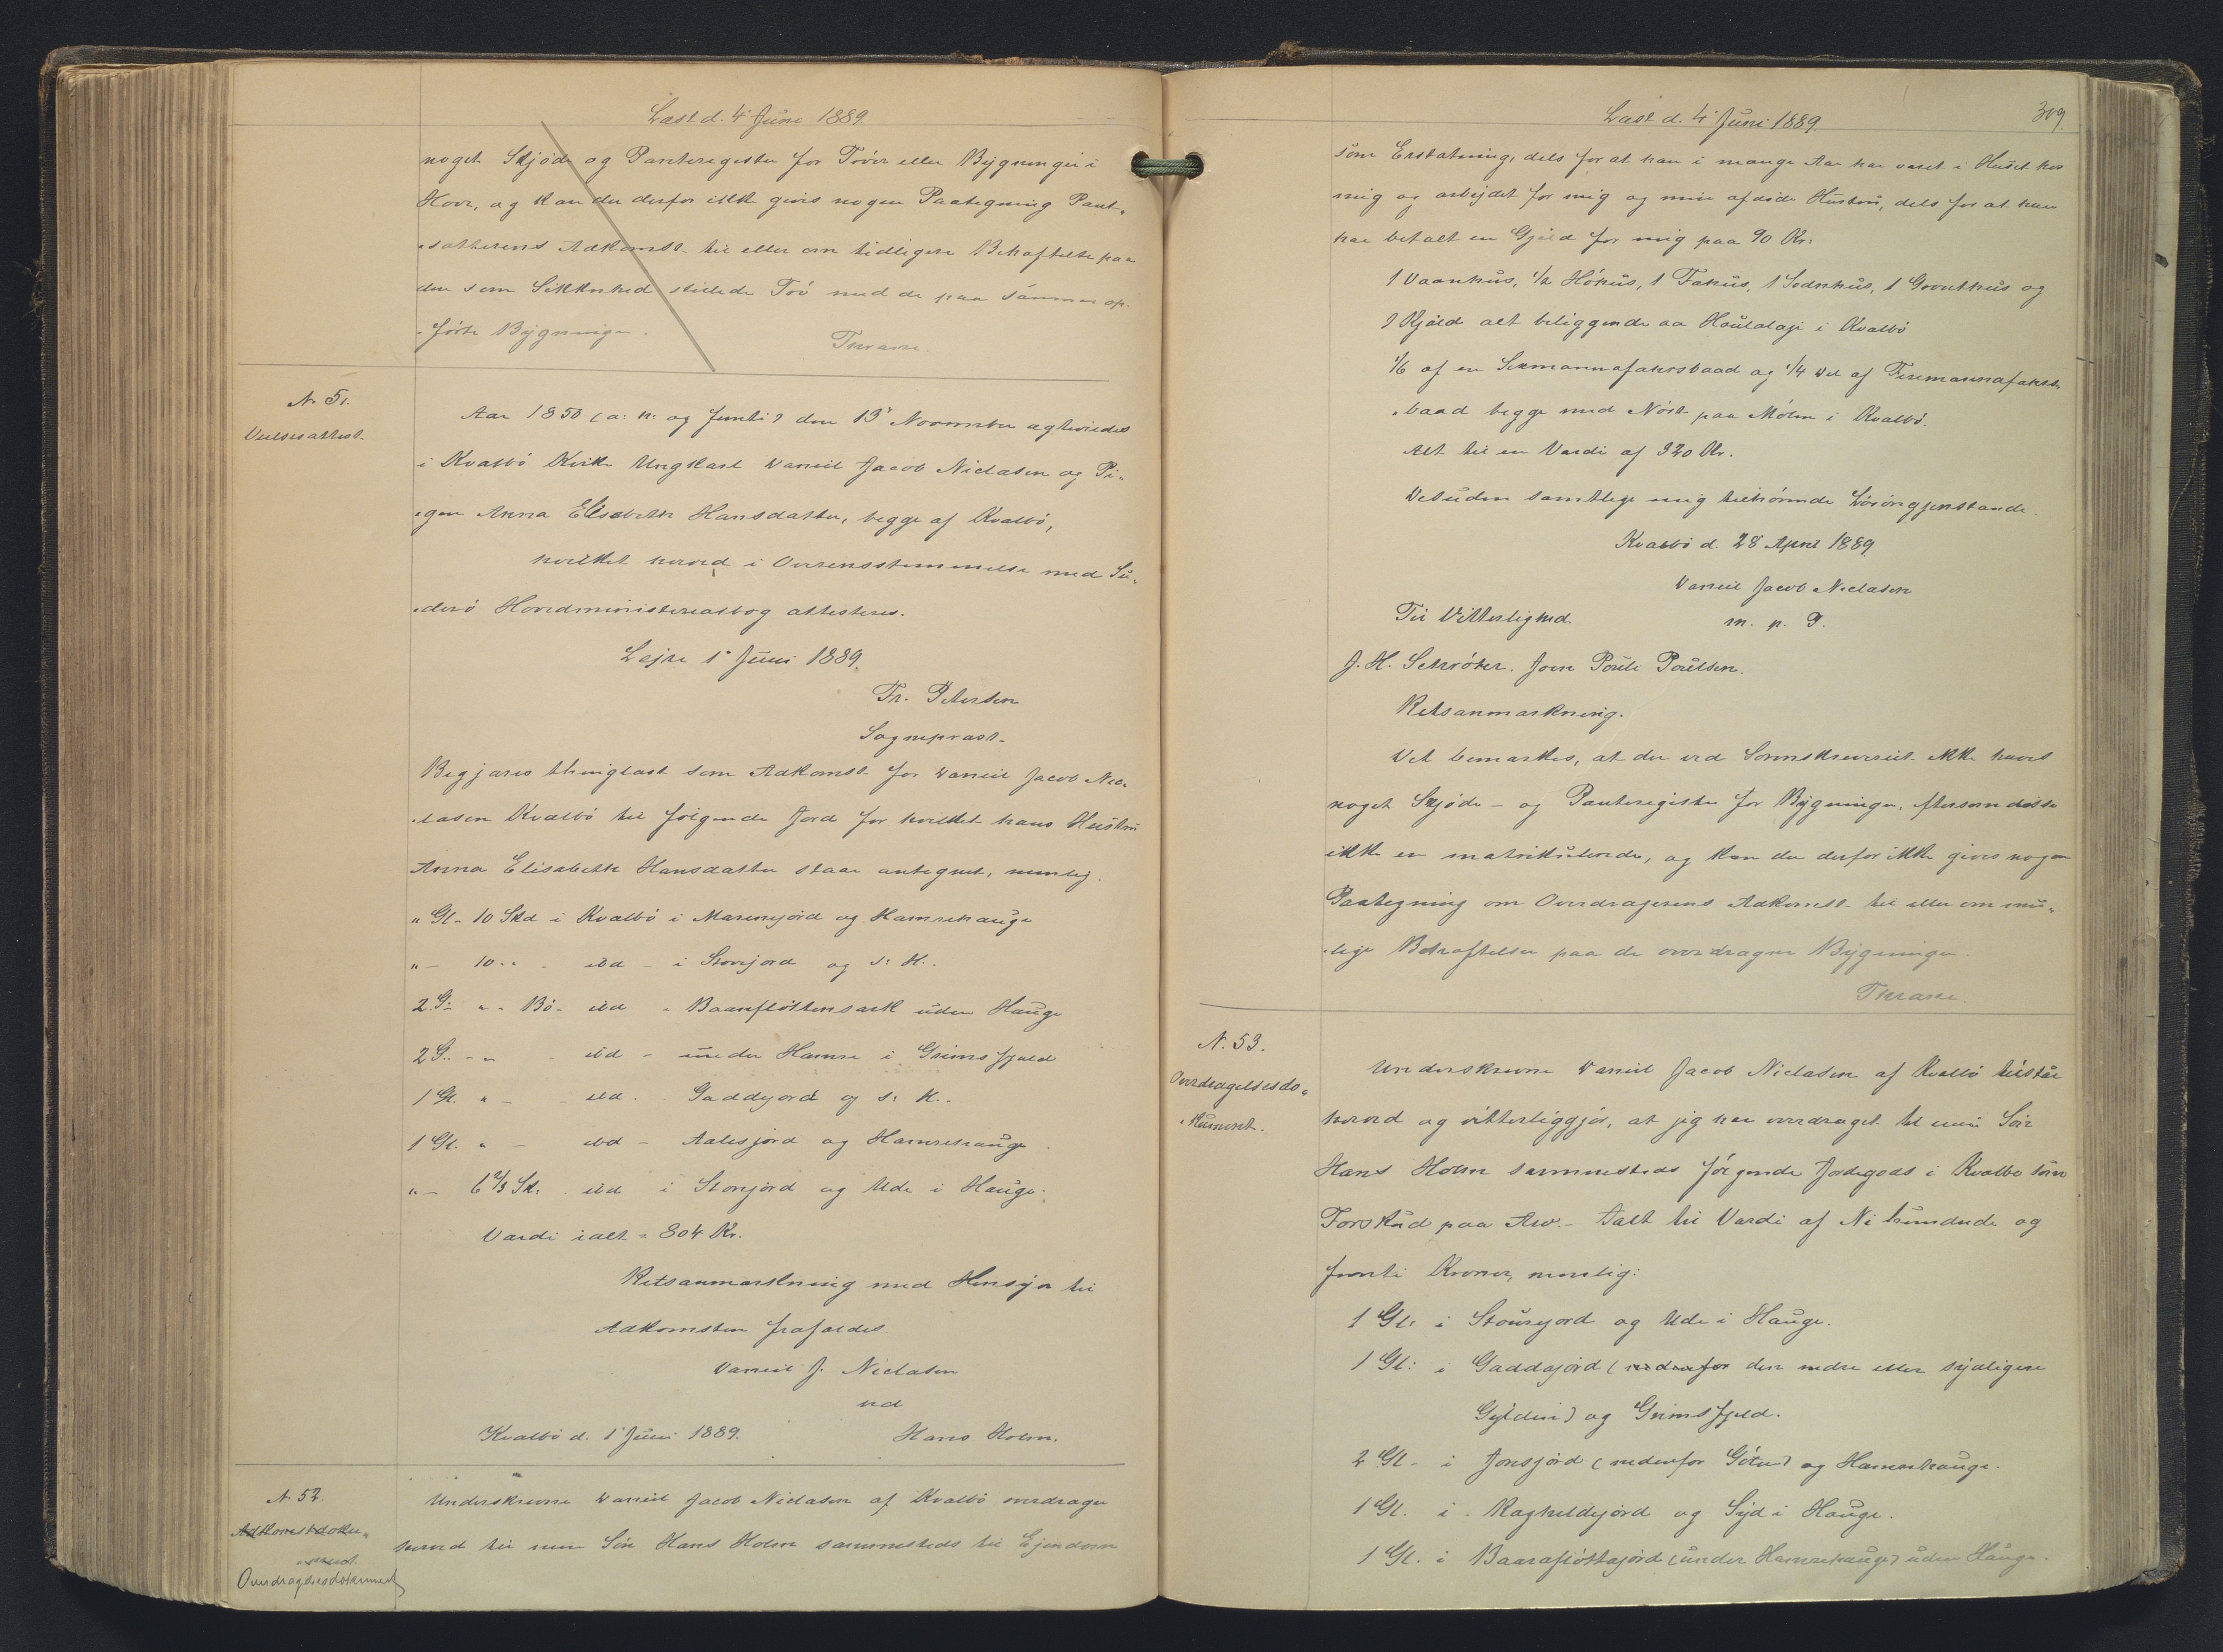 Læst d. 4' Juni 1889
noget Skjøde og Panteregister for Tróer eller Bygninger i
Hove, og kan der derfor ikke gives nogen Paategning Pant-
sætterens Adkomst til eller om tidligere Behæftelse paa
den som Sikkerhed stillede Tró med de paa samme op-
førte Bygninger.
Thrane.
N. 51.
Vielsesattest.
Aar 1850 (a: n: og femti) den 13' November ægteviedes
i Kvalbø Kirke Ungkarl Daniel Jacob Niclasen og Pi-
gen Anna Elisabeth Hansdatter, begge af Kvalbø,
hvilket herved i Overensstemmelse med Su-
derø Hovedministerialbog attesteres.
Lejre 1' Juni 1889.
Fr. Petersen
Sognepræst.
Begjæres thinglæst som Adkomst for Daniel Jacob Nic-
lasen Kvalbø til følgende Jord for hvilket hans Hustru
Anna Elisabeth Hansdatter staar antegnet, nemlig.
" Gl- 10 Skd i Kvalbø i Marnesjord og Hamrehauge
" - 10 " - ibd - i Storejord og s: H..
2 G: " - Bø - ibd - Baarafløttensark uden Hauge
2 G.. - " - ibd - under Hamre i Grimsfjeld
1 Gl. " - - ibd . Gaddejord og s: H..
1 Gl. " - ibd - Aalesjord og Hamrehauge.
" - 6 2/3 Sk: . ibd i Storejord og Ude i Hauge.
Værdi ialt = 304 Kr.
Retsanmærkning med Hensyn til
Adkomsten frafaldes.
Daniel J. Niclasen
ved
Kvalbø d. 1' Juni 1889. Hans Holm.
N. 52.
Adkomstdoku-
ment.
Overdragelsesdokument
Underskrevne Daniel Jacob Niclasen af Kvalbø overdrager
herved til min Søn Hans Holm sammesteds til Ejendom
Læst d. 4' Juni 1889.
309.
som Erstatning, dels for at han i mange Aar har været i Huset hos
mig og arbejdet for mig og min afdøde Hustru, dels for at han
har betalt en Gjæld for mig paa 90 Kr:
1 Vaanhus, 1/2 Høhus, 1 Fæhus, 1 Sodnhus, 1 Groenthus og
1 Kjald alt beliggende aa Houlalaji i Kvalbø
1/6 af en Sexmannafarsbaad og 1/4 del af Firemannafars-
baad begge med Nøst paa Mólen i Kvalbø.
Alt til en Værdi af 320 Kr.
Desuden samtlige mig tilhørende Løsøregjenstande.
Kvalbø d. 28 April 1889
Daniel Jacob Niclasen
Til Vitterlighed. m. p. P.
J. H. Schrøter. Joen Poule Poulsen.
Retsanmærkning.
Det bemærkes, at der ved Sorenskriveriet ikke haves
noget Skjøde- og Panteregister for Bygninger, eftersom disse
ikke er matrikulerede, og kan der derfor ikke gives nogen
Paategning om Overdragerens Adkomst til eller om mu-
lige Behæftelser paa de overdragne Bygninger.
Thrane.
N. 53.
Overdragelsesdo-
kument.
Underskrevne Daniel Jacob Niclasen af Kvalbø tilstaar
herved og vitterliggjør, at jeg har overdraget til min Søn
Hans Holm sammesteds følgende Jordegods i Kvalbø som
Forskud paa Arv. - Ialt til Værdi af Ni hundrede og
femti Kroner, nemlig:
1 Gl: i Stourejord og Ude i Hauge.
1 Gl: i Gaddajord (nedenfor den nedre eller sydligere
Gylden) og Grimsfjeld.
2 Gl- i Jonsjord (nedenfor Gøten) og Hamrehauge.
1 Gl. i . Ragheldejord og Syd i Hauge.
1 Gl. i Baarafløttajord (under Hamrehauge) uden Hauge.